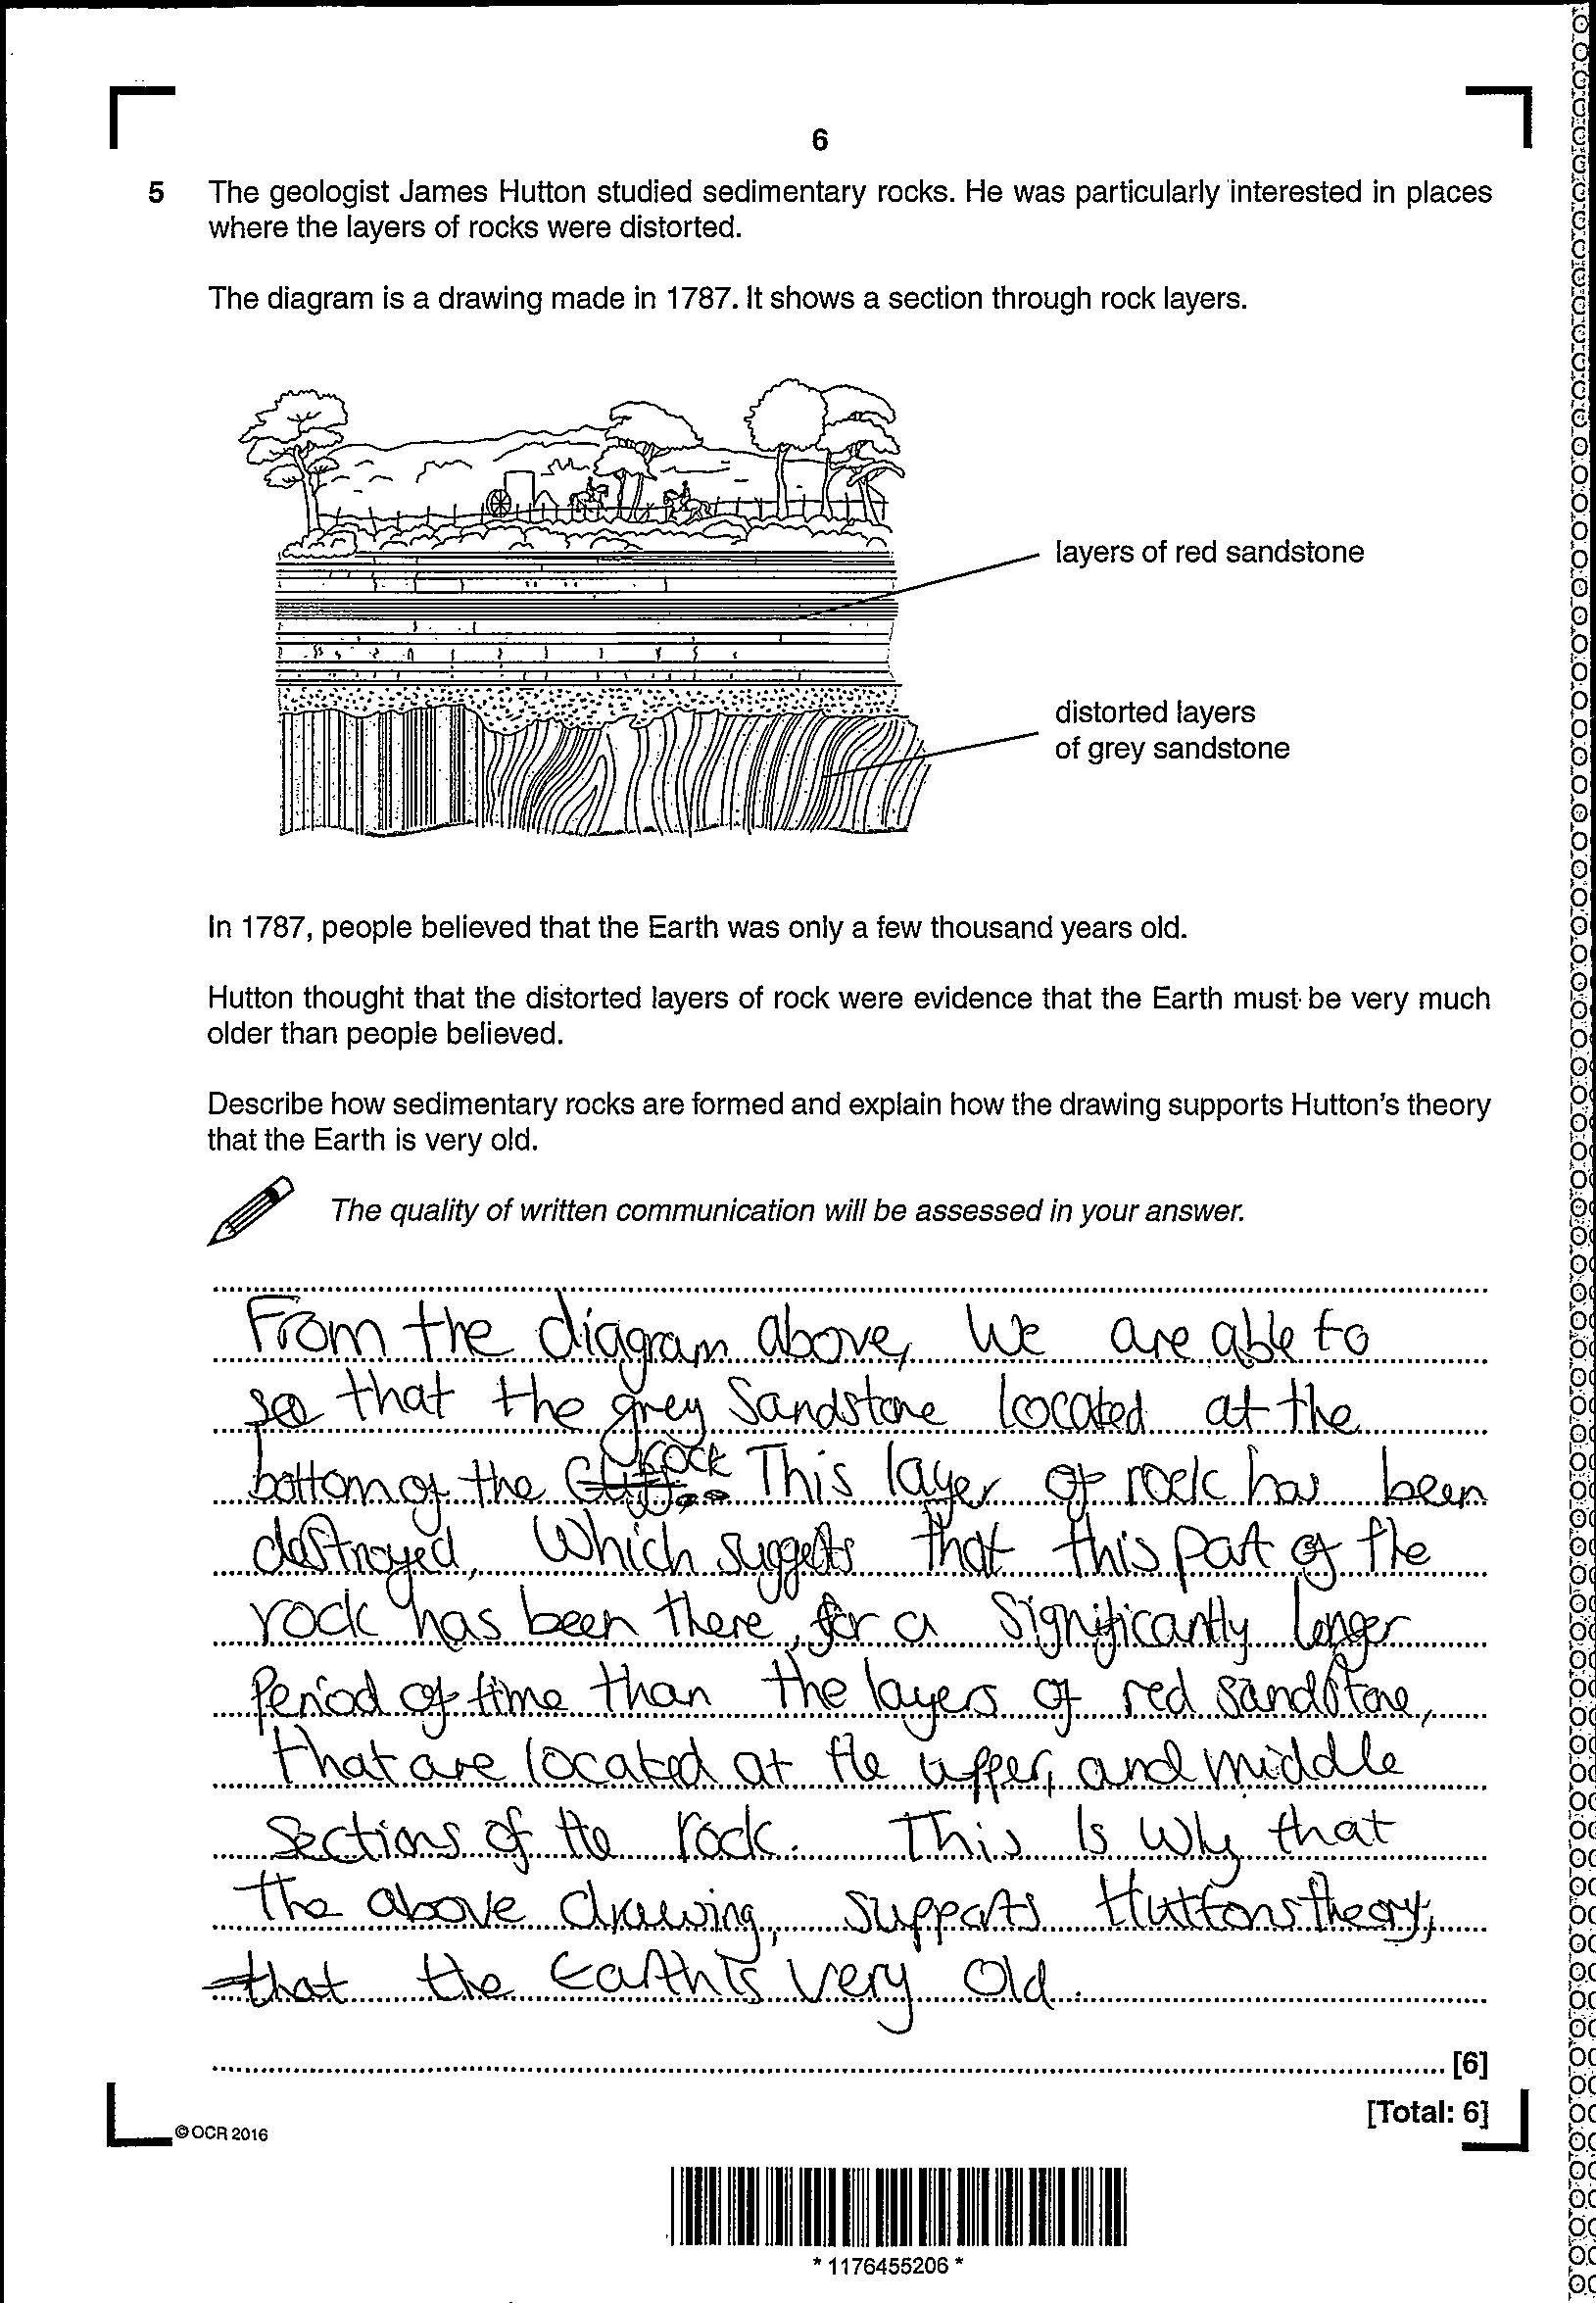 6
5 The geologist James Hutton studied sedimentary rocks. He was particularly interested in places
where the layers of rocks were distorted.
The diagram is a drawing made in 1787. It shows a section through rock layers.
layers of red sandstone
distorted layers
of grey sandstone
In 1787, people believed that the Earth was only a few thousand years old.
Hutton thought that the distorted layers of rock were evidence that the Earth must be very much
older than people believed.
Describe how sedimentary rocks are formed and explain how the drawing supports Hutton's theory
that the Earth is very old.
The quality of written communication will be assessed in your answer.
From the diagram above, we are able to
see that the grey sandstone located at the
bottom of the rock. This layer of rock has been
destroyed, which suggests that this part of the
rock has been there, for a significantly longer
period of time than the layers of red sandstone,
that are located at the upper, and middle
sections of the rock. This is why that
the above drawing, supports Huttons theory,
that the Earth is very old.
[6]
[Total: 6]
© OCR 2016
* 1176455206 *